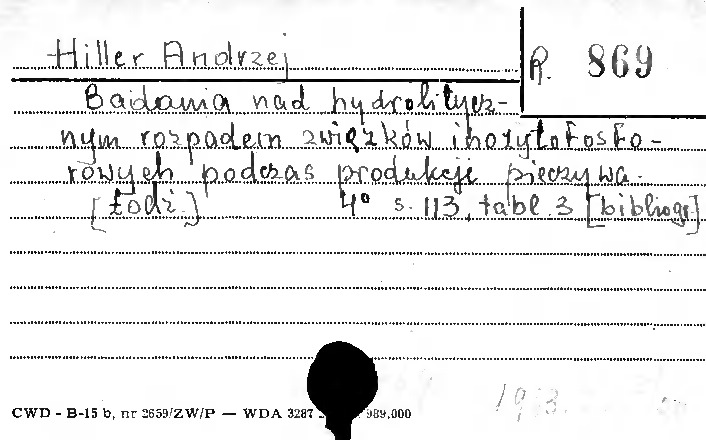 Hiller Andrzej
R. 869
Badania nad hydrolitycz-
nym rozpadem związków inozytofosfo-
rowych podczas produkcji pieczywa.
[Łódź.] 4° s. 113, tabl. 3 [bibliogr]
CWD - B-15 b, nr 2659/ZW/P — WDA 3287 989,000